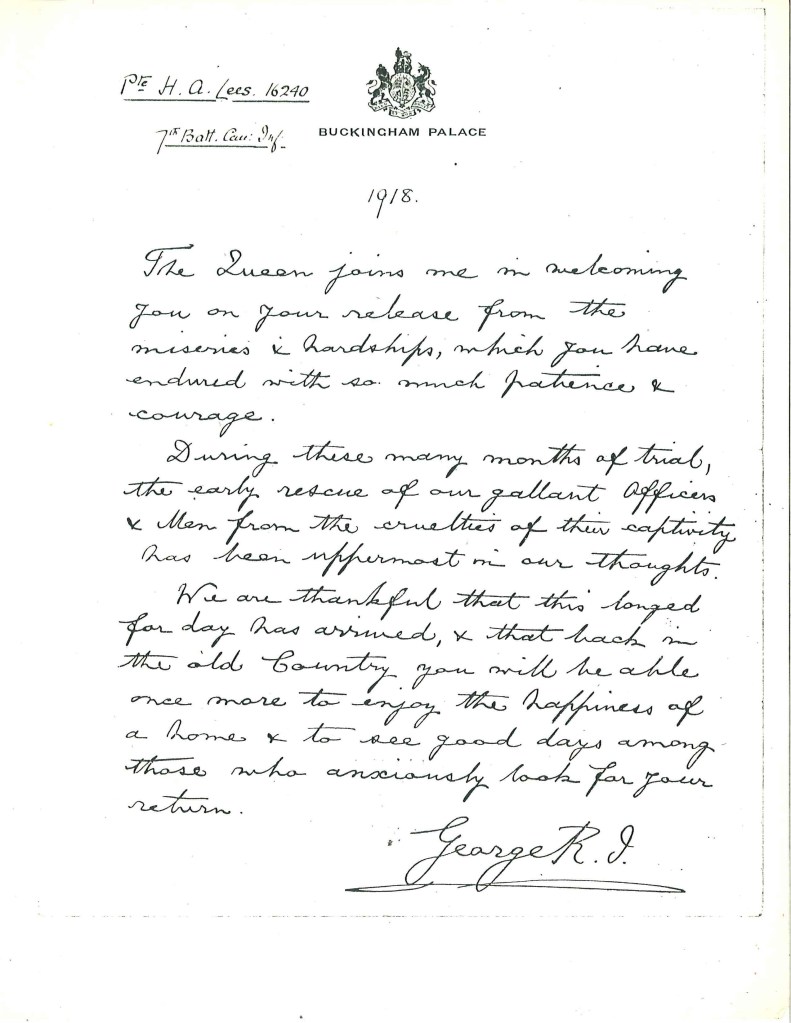 Pte H. A. Lees. 16240
7th Batt. Can: Inf.
BUCKINGHAM PALACE
1918.
The Queen joins me in welcoming
you on your release from the
miseries & hardships, which you have
endured with so much patience &
courage.
During these many months of trial,
the early rescue of our gallant Officers
& Men from the cruelties of their captivity
has been uppermost in our thoughts.
We are thankful that this longed
for day has arrived, & that back in
the old Country you will be able
once more to enjoy the happiness of
a home & to see good days among
those who anxiously look for your
return.
George R. I.